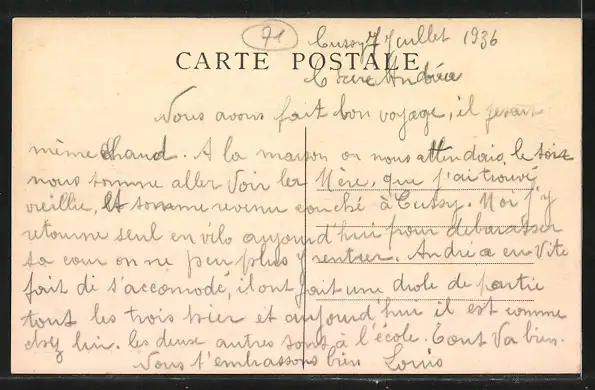 71
Cussy 7 Juillet 1936
CARTE POSTALE
Chere Andréa
Nous avons fait bon voyage, il fesait
même chaud. A la maison on nous attendais, le soir
nous somme aller voir la Mère, que j'ai trouvé
vieillie, et somme revenu couché à Cussy. Moi j'y
retourne seul en vélo aujourd'hui pour debarasser
sa cour on ne peu plus y rentrer. Andréa en vite
fait di s'accomodé, il ont fait une drole de partie
tout les trois hier et aujourd'hui il est comme
chez lui. les deux autres sont à l'école. Tout va bien.
Nous t'embrassons bien Louis